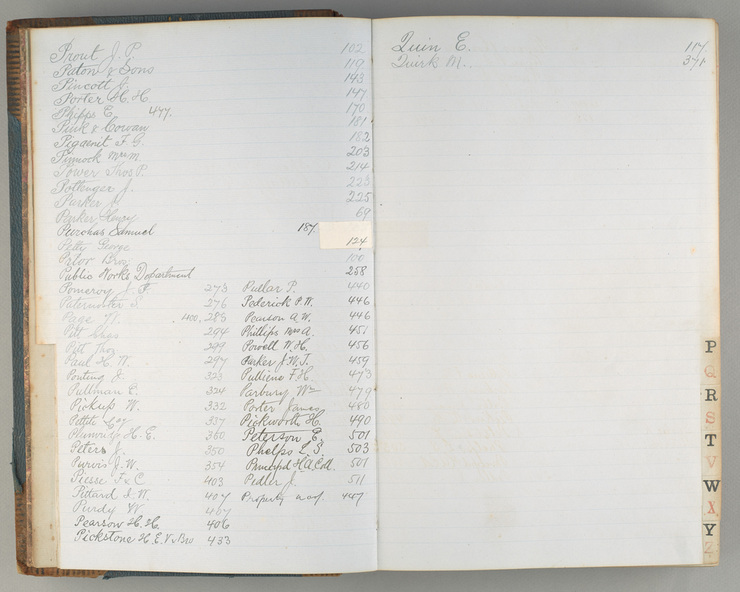 Prout J. P. 102
Paton & Sons 119
Pincott J. 143
Porter H. H. 147
Phipps E 477. 170
Pink & Cowan 181
Piguenit F. G. 182
Pinnock Mrs M. 203
Power Thos P. 214
Pottenger J. 223
Parker J. 225
Parker Henry 69
Purchas Samuel 187
Petty George 124
Prior Bros 100
Public Works Department 258
Pomeroy J. 273
Paternoster S. 276
Page W. 1100, 283
Pitt Chas 294
Pitt Thos 299
Paul H. W. 297
Ponting J. 323
Pullman C. 324
Pickup W. 332
Pettit Geo 357
H. E. 360
Peters J. 350
Purvis J. W. 354
Piesse F & C 403
Pittard J. W. 407
Purdy W 407
Pearson H. H. 406
Pickstone H. E. V. & Bro 433
Pullar P. 440
Pederick P. W. 446
Pearson A. W. 446
Phillips Mrs A. 451
Powell W. H. 456
Parker J. W. T. 459
F. H. 473
Parbury Wm 479
Porter James 480
Pickworth H. 490
Peterson E. 501
Phelps L. S. 503
H. A. C. 501
Pedler J. 511
Property a/cs. 447
Quin E. 117
Quirk M. 371
P
Q
R
S
T
V
W
X
Y
Z